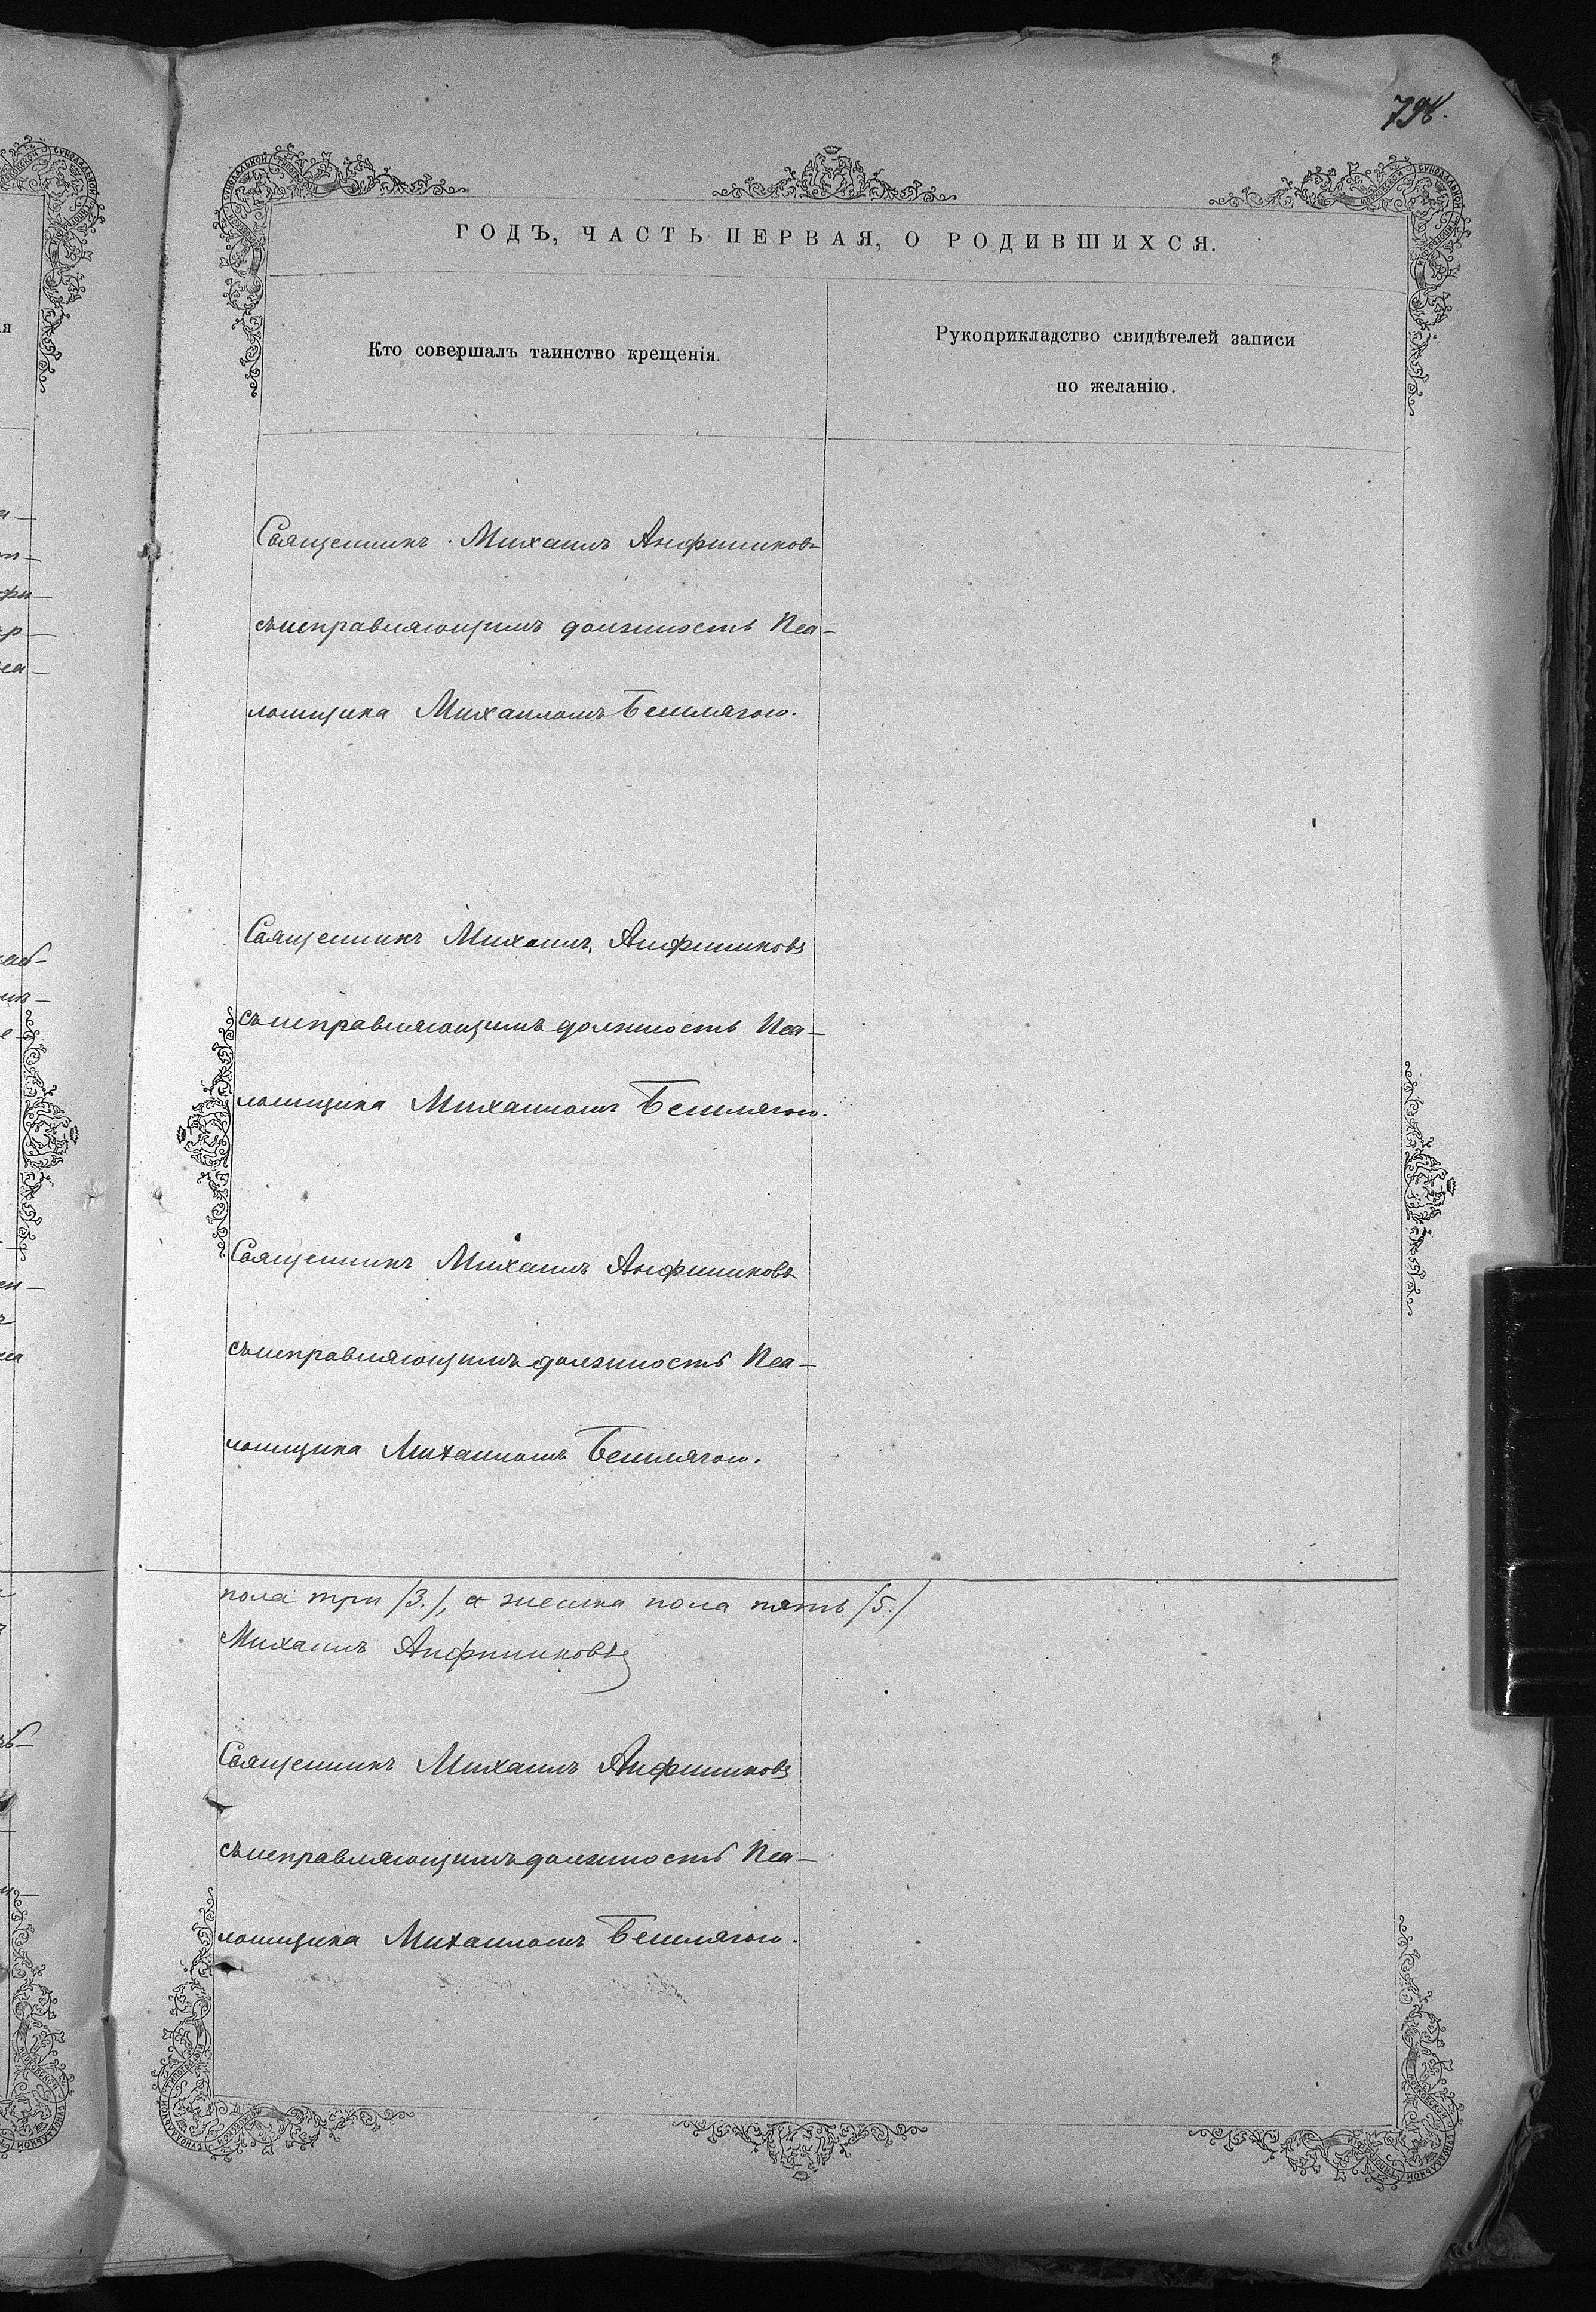 798.
ГОДЪ, ЧАСТЬ ПЕРВАЯ, О РОДИВШИХСЯ.
Кто совершалъ таинство крещенія.
Рукоприкладство свидѣтелей записи
по желанію.
Священникъ Михаилъ Анфиниковъ
съ исправляющимъ должность Пса-
ломщика Михаиломъ Бешлягою.
Священникъ Михаилъ Анфиниковъ
съ исправляющимъ должность Пса-
ломщика Михаиломъ Бешлягою.
Священникъ Михаилъ Анфиниковъ
съ исправляющимъ должность Пса-
ломщика Михаиломъ Бешлягою.
пола три /3./, а женска пола пять /5./
Михаилъ Анфиниковъ
Священникъ Михаилъ Анфиниковъ
съ исправляющимъ должность Пса-
ломщика Михаиломъ Бешлягою.